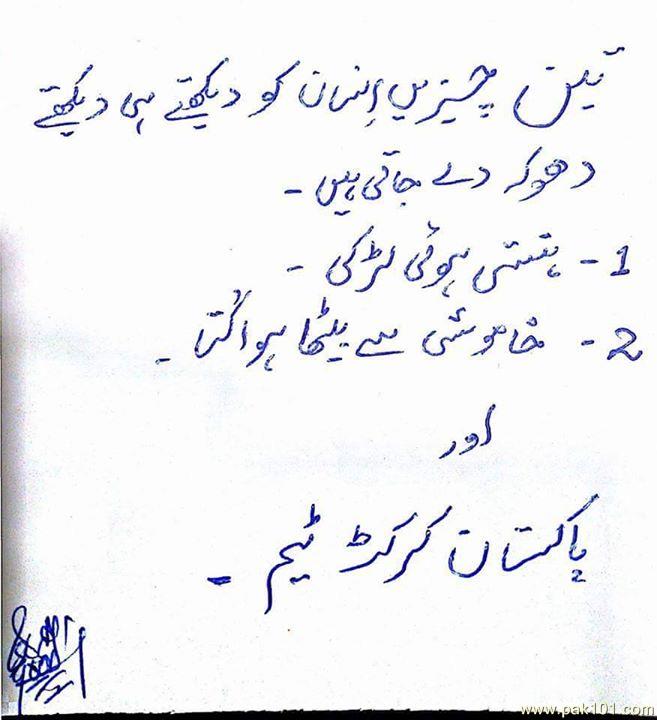 تین چیزیں اِنسان کو دیکھتے ہی دیکھتے
دھوکہ دے جاتی ہیں -
1 - ہنستی ہوئی لڑکی -
2 - خاموشی سے بیٹھا ہوا کُتا -
اور
پاکستان کرکٹ ٹیم -
www.pak101.com